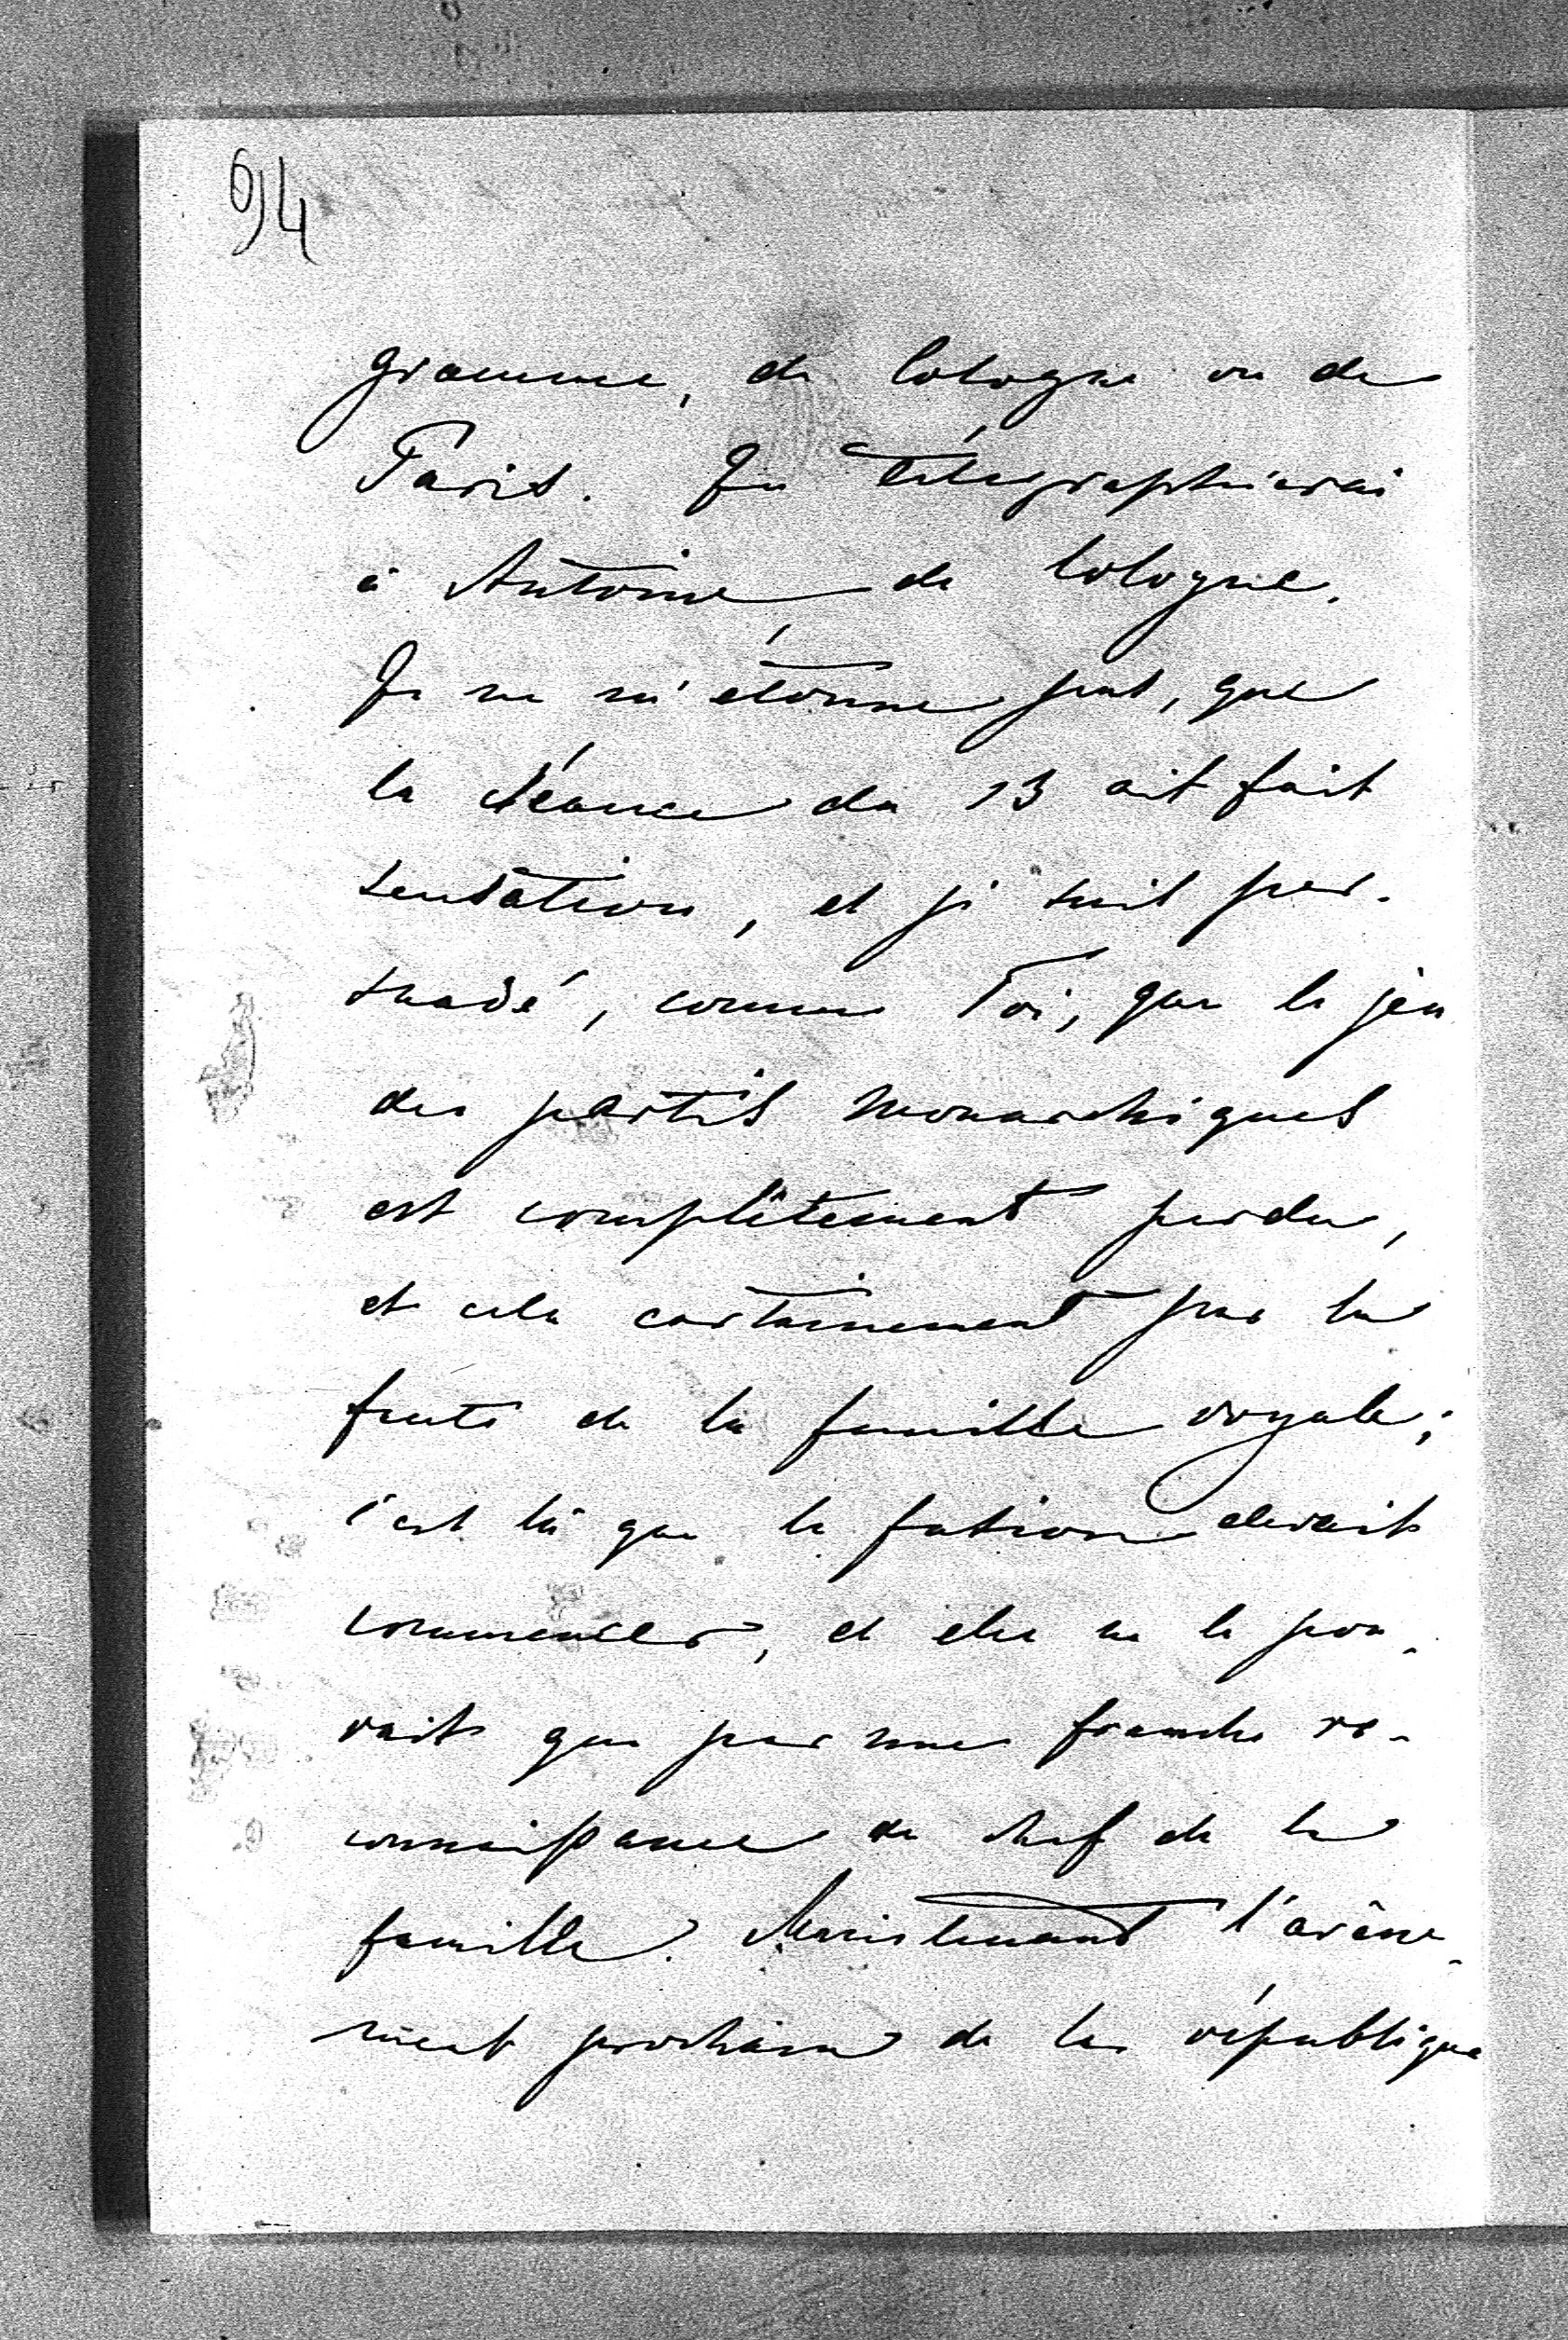 694
gramme, de Cologne ou de
Paris. Je télégraphierai
à Antoine de Cologne.
Je ne m'étonne pas, que
la séance du 13 ait fait
sensation, et je suis per-
suadé, comme Toi, que le jeu
des partis monarchiques
est complètement perdu,
et cela certainement par la
faute de la famille royale;
c'est là que la fusion devait
commencer, et elle ne le pou-
vait que par une franche re-
connaissance du chef de la
famille. Maintenant l'avène-
ment prochain de la république